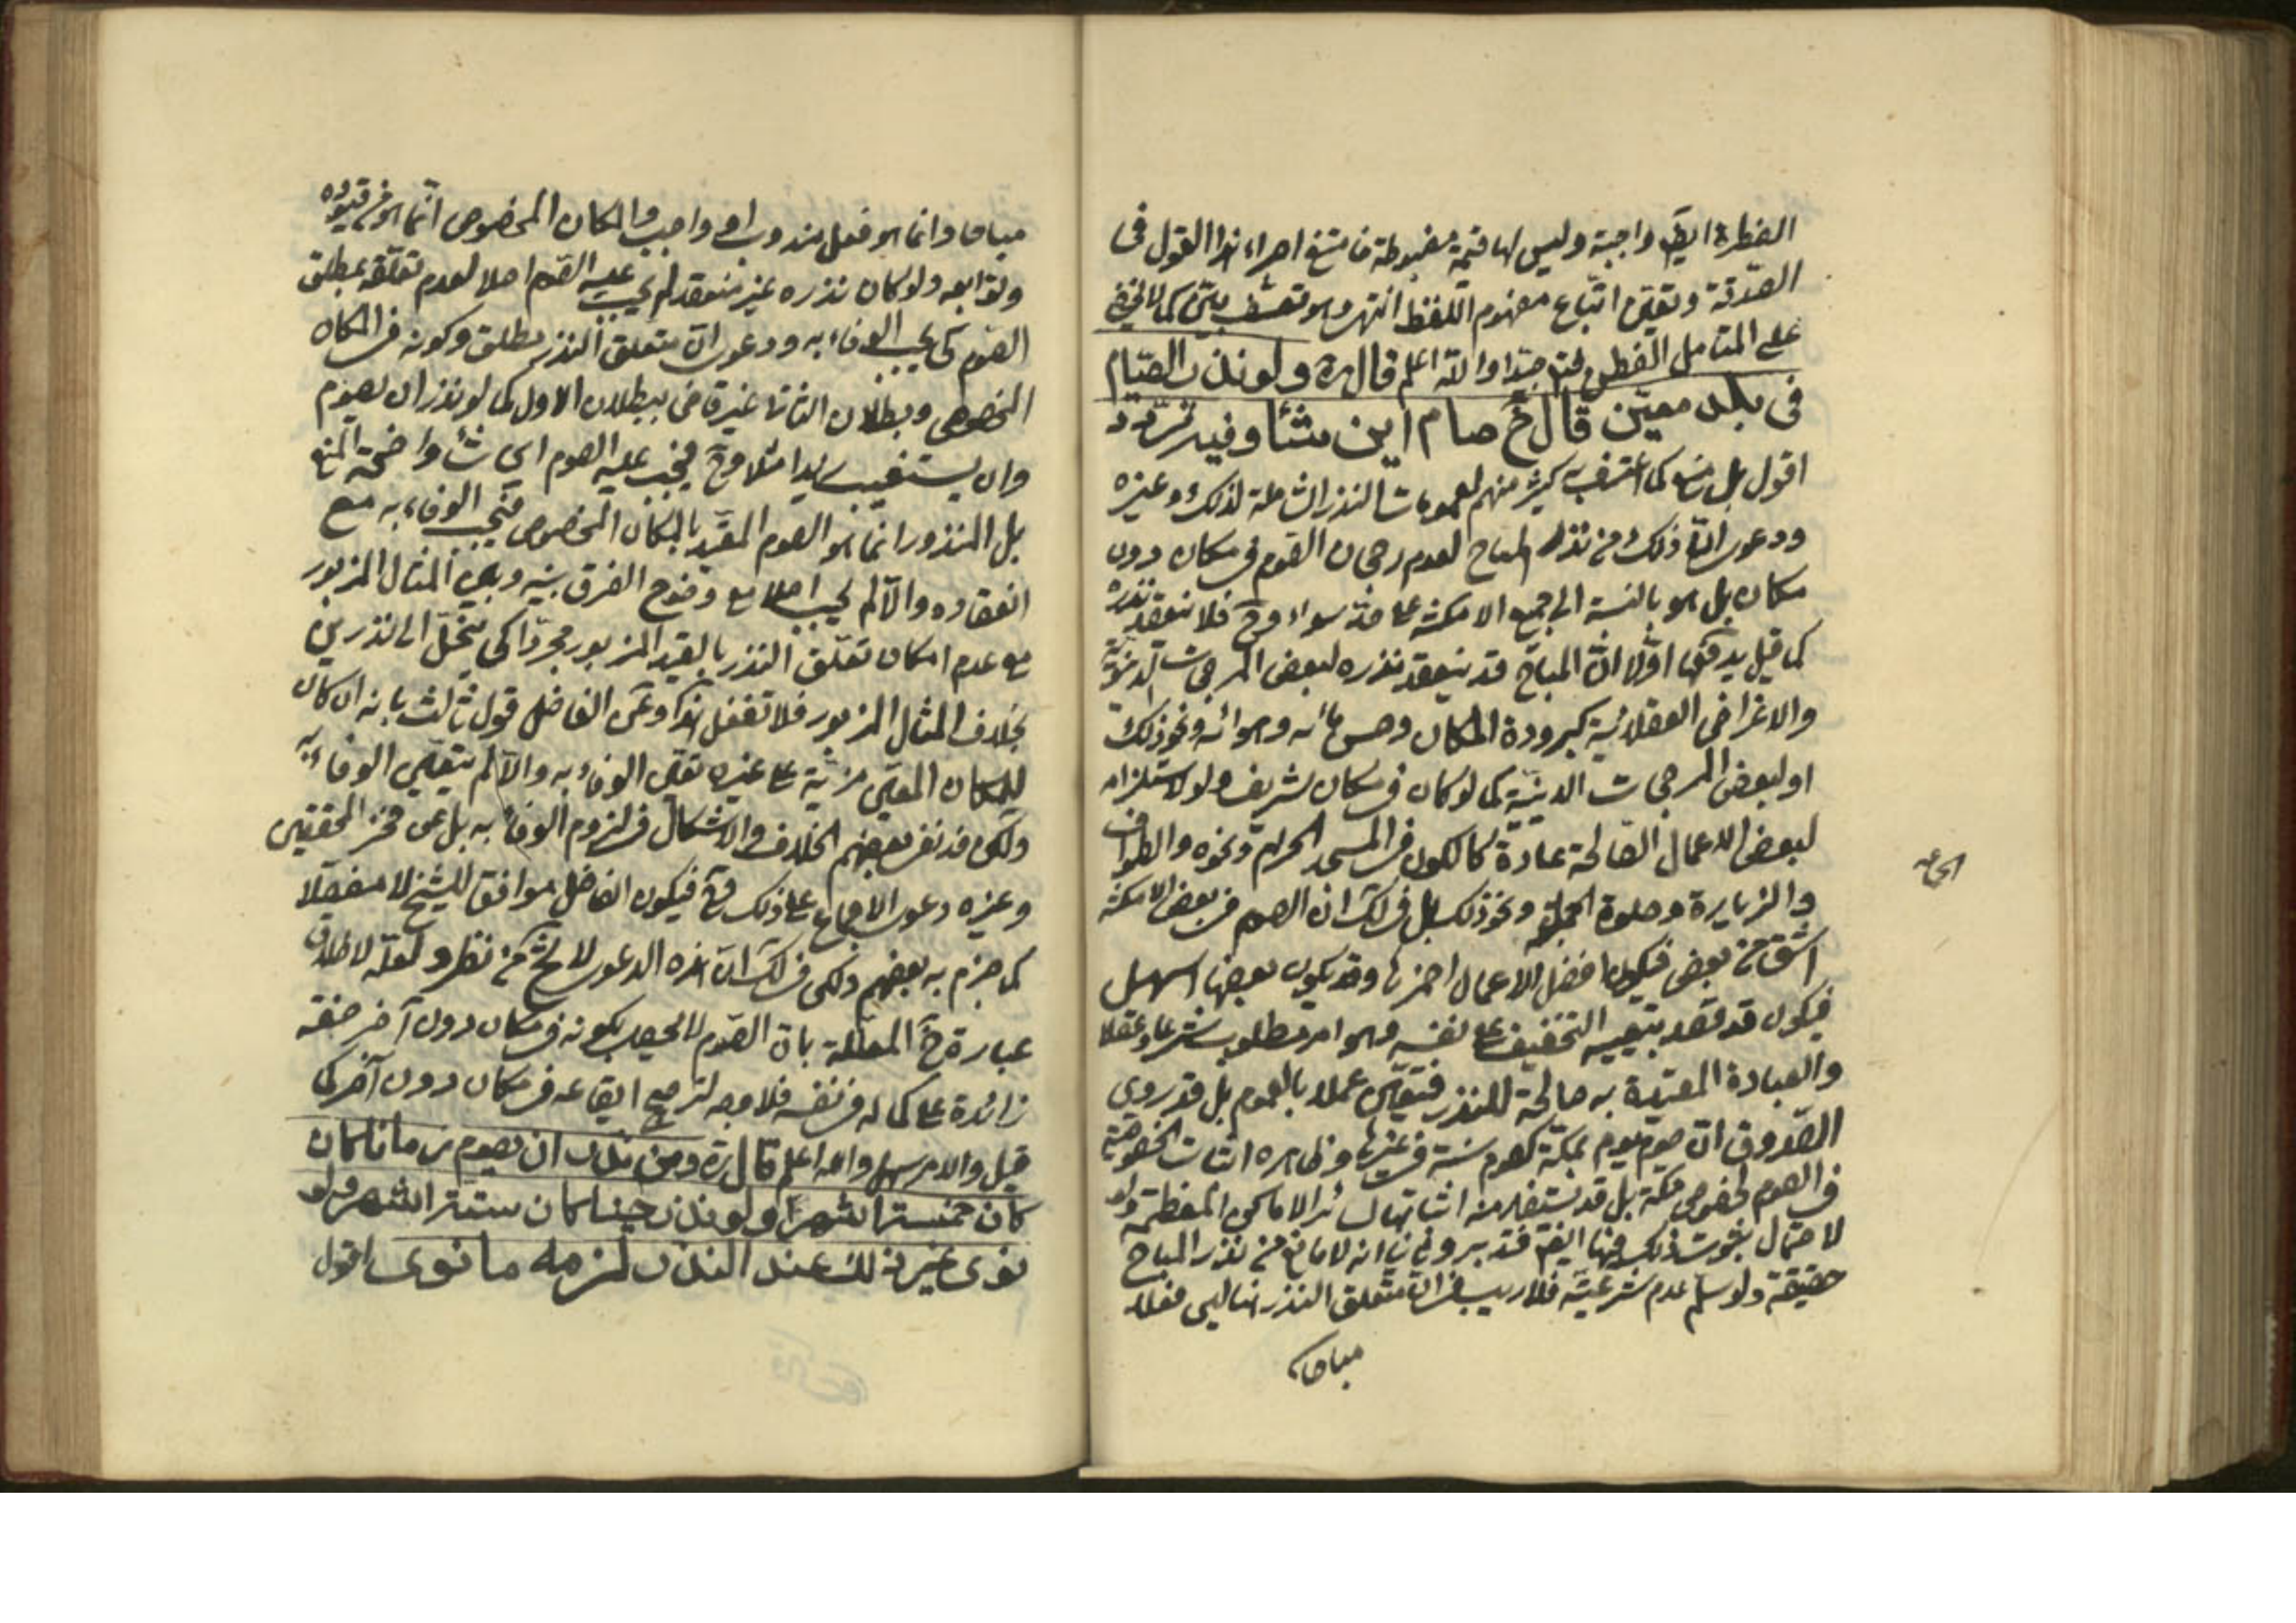 الفطرة ايضا واجبة وليس لها قيمة مضبوطة اجراء هذا القول في
الصدقة وتعين اتباع مفهوم اللفظ انتهى وهو تعسف بيّن كما لا يخفى
على المتامل الفطن جدا والله اعلم قال ره ولو نذر الصيام
في بلد معيّن قال خ صام اين شاء وفيه تردد
اقول بل منع كما اعترف به كثير منهم لعمومات النذر الشاملة لذلك وغيره
ودعوى انّ ذلك من نذر المباح لعدم رجحان الصوم في مكان دون
مكان بل هو بالنسبة الى جميع الامكنة على حدّ سواء وح فلا ينعقد نذره
كما قيل يدفعها اولا انّ المباح قد ينعقد نذره لبعض المرجحات الدنيوية
والاغراض العقلائية كبرودة المكان وحسن مائه وهوائه ونحو ذلك
او لبعض المرجحات الدينية كما لو كان في مكان شريف ولو لاستلزامه
لبعض الاعمال الصالحة عادة كالكون في المسجد الحرام ونحوه والطواف
والزيارة وصلوة الجماعة ونحو ذلك بل في لك ان الصوم في بعض الامكنة
اشق من بعض فيكون افضل الاعمال احمزها وقد يكون بعضها اسهل
فيكون قد قصد بتعيينه التخفيف على نفسه وهو امر مطلوب شرعا وعقلا
والعبادة المقيدة به صالحة للنذر فتعين عملا بالعموم بل قد روى
الصدوق انّ صوم يوم بمكة كصوم سنة في غيرها وظاهره اثبات الخصوصية
في الصوم لخصوص مكة بل قد يستفاد منه اثباتها لسائر الاماكن المعظمة ولو
لاحتمال ثبوت ذلك فيها ايضا فتدبر وثانيا انه لا مانع من نذر المباح
حقيقة ولو سلم عدم شرعيته فلا ريب في ان متعلق النذر هنا ليس فعلا
مباحا
مباحا وانما هو فعل مندوب او واجب والمكان المخصوص انما هو من قيوده
وتوابعه ولو كان نذره غير منعقد لم يجب عليه الصوم اصلا لعدم تعلقه بمطلق
الصوم كى يجب الوفاء به ودعوى ان متعلق النذر مطلق وكونه في المكان
المخصوص وبطلان الثانى غير قاض ببطلان الاول كما لو نذر ان يصوم
وان يستغيب زيدا مثلا وح فيجب عليه الصوم اى شاء واضحة المنع
بل المنذور انما هو الصوم المقيد بالمكان المخصوص فيجب الوفاء به مع
انعقاده والّا لم يجب اصلا مع وضوح الفرق بينه وبين المثال المزبور
مع عدم امكان تعلق النذر بالقيد المزبور مجردا كى ينحل الى نذرين
بخلاف المثال المزبور فلا تغفل هذا وعن الفاضل قول ثالث بانه ان كان
للمكان المعين مزية على غيره تعين الوفاء به والّا لم يتعين الوفاء به
ولكن قد نفى بعضهم الخلاف والاشكال في لزوم الوفاء به بل عن فخر المحققين
وغيره دعوى الاجماع على ذلك وح فيكون الفاضل موافقا للشيخ لا مفصلا
كما جزم به بعضهم ولكن في لك ان هذه الدعوى لا يخ من نظر ولعله لاطلاق
عبارة خ المعللة بان الصوم لا يحصل بكونه في مكان دون آخر صفة
زائدة على كماله في نفسه فلا وجه لترجيح ايقاعه في مكان دون آخر كما
قيل والامر سهل والله اعلم قال ره ومن نذر ان يصوم زمانا كان
كان خمسة اشهر ولو نذر حينا كان ستة اشهر ولو
نوى غير ذلك عند النذر لزمه ما نوى اقول